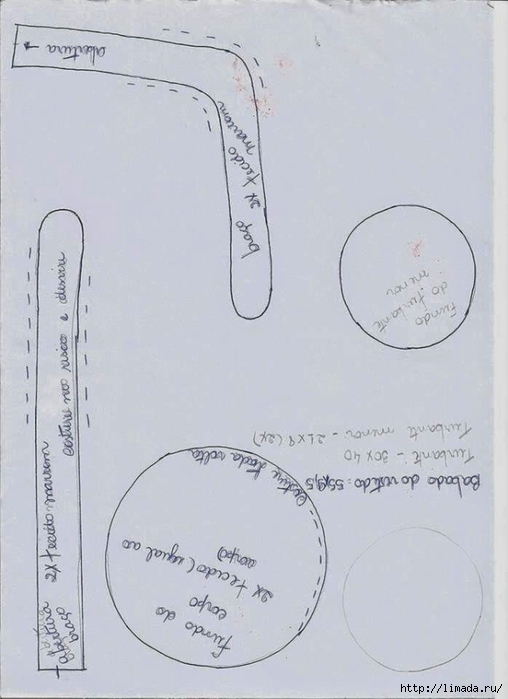 abertura
braço 2x tecido
marrom
Fundo
do turbante
menor
2x tecido marrom
costure no risco e desvire
abertura
braço
Turbante menor - 21x9 (2x)
Turbante - 30x40
Babado do vestido: 55x9,5
costure toda volta
Fundo do
corpo
2x tecido (igual ao
corpo)
http://limada.ru/